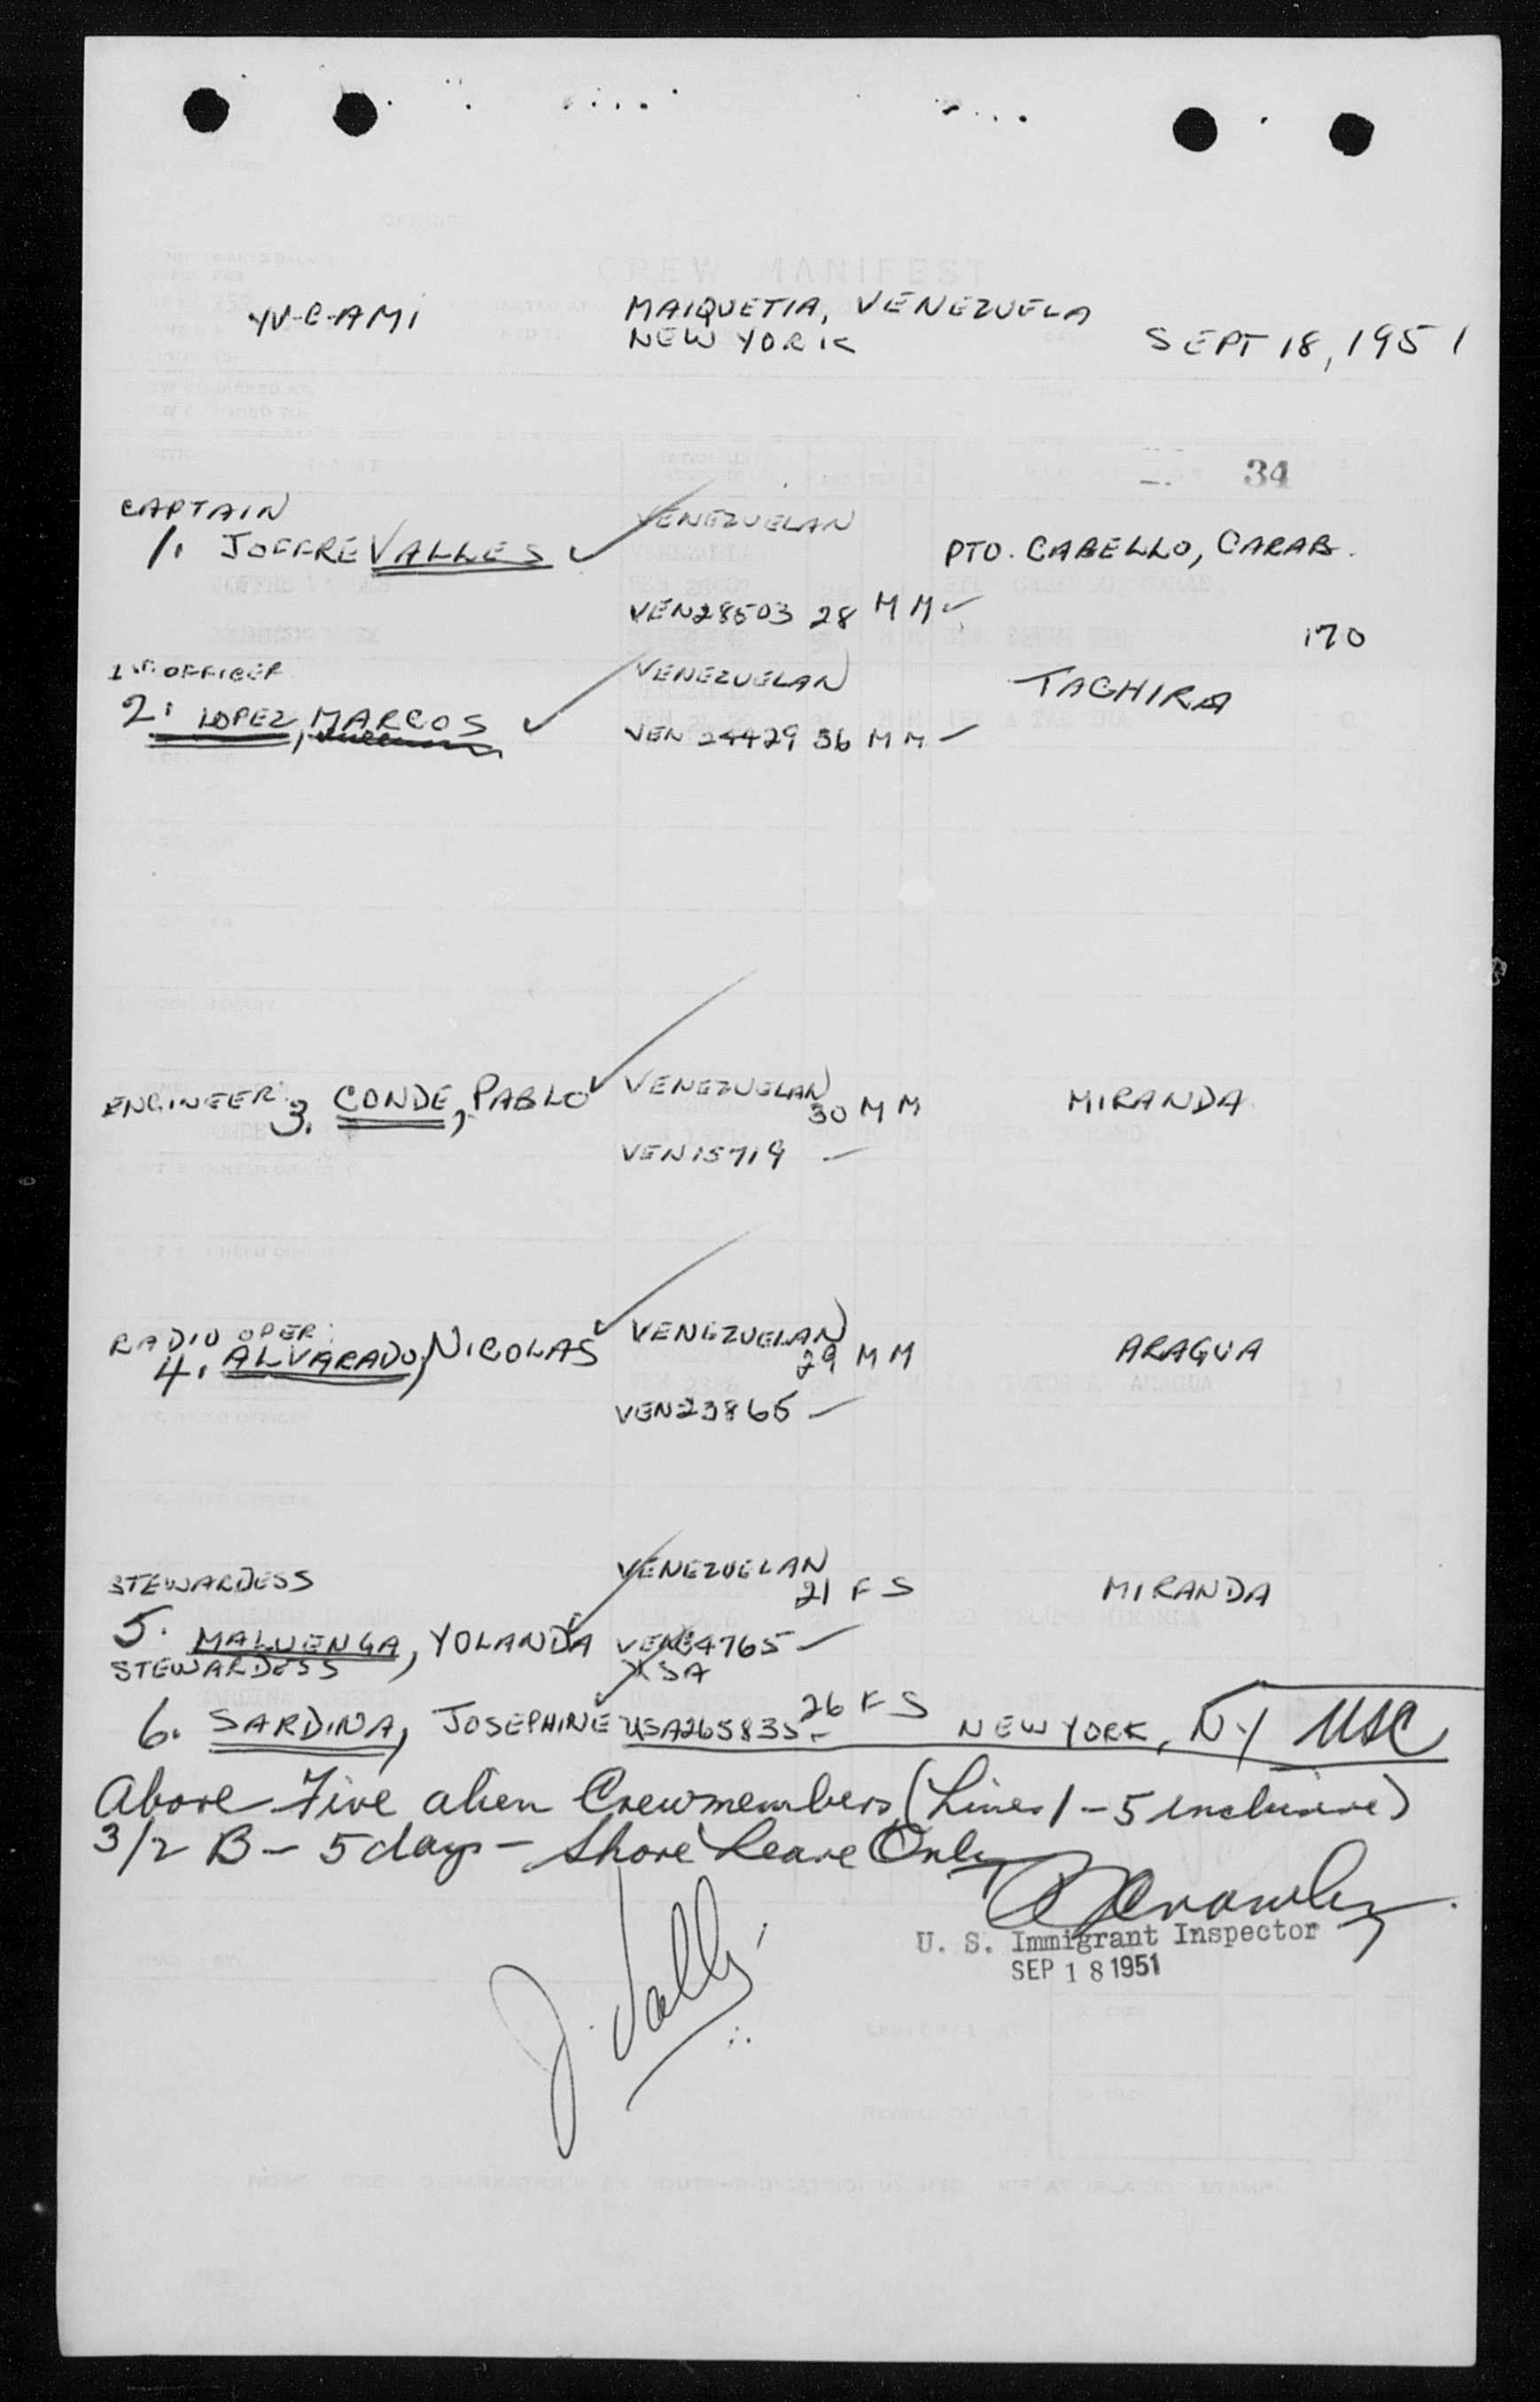 CREW MANIFEST
YV-C-AMI MAIQUETIA, VENEZUELA
NEW YORK SEPT 18, 1951
34
CAPTAIN VENEZUELAN
1. JOFFRE VALLES PTO. CABELLO, CARAB.
VEN28503 28 M M
170
1ST OFFICER VENEZUELAN TACHIRA
2. LOPEZ, MARCOS VEN 24429 36 M M
ENGINEER: 3. CONDE, PABLO VENEZUELAN 30 M M MIRANDA
VEN15719
RADIO OPER: VENEZUELAN
4. ALVARADO, NICOLAS 29 M M ARAGUA
VEN23865
STEWARDESS VENEZUELAN 21 F S MIRANDA
5. MALUENGA, YOLANDA VEN34765
STEWARDESS USA
6. SARDINA, JOSEPHINE USA265835 26 F S NEW YORK, NY USC
Above Five alien Crewmembers (Lines 1-5 inclusive)
3/2 B - 5 days - Shore Leave Only
Crowley
U. S. Immigrant Inspector
SEP 18 1951
J. Valles